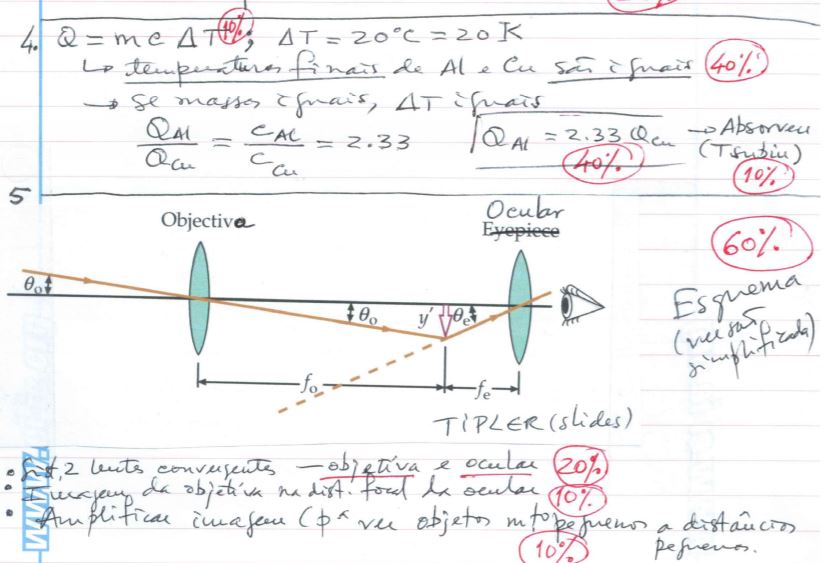 4. Q = m c ΔT 10% ; ΔT = 20°C = 20 K
↳ temperaturas finais de Al e Cu são iguais 40%
→ Se massas iguais, ΔT iguais
Q_Al / Q_Cu = c_Al / c_Cu = 2.33 Q_Al = 2.33 Q_Cu → Absorveu
40% (T subiu)
10%
5
Objectiva Ocular
Eyepiece
60%
θo θo y' θe
Esquema
(versão
simplificada)
fo fe
TIPLER (slides)
• Sist. 2 lentes convergentes — objetiva e ocular 20%
• Imagem da objetiva na dist. focal da ocular 10%
• Amplificar imagem (pª ver objetos mtº pequenos a distâncias
10% pequenos.